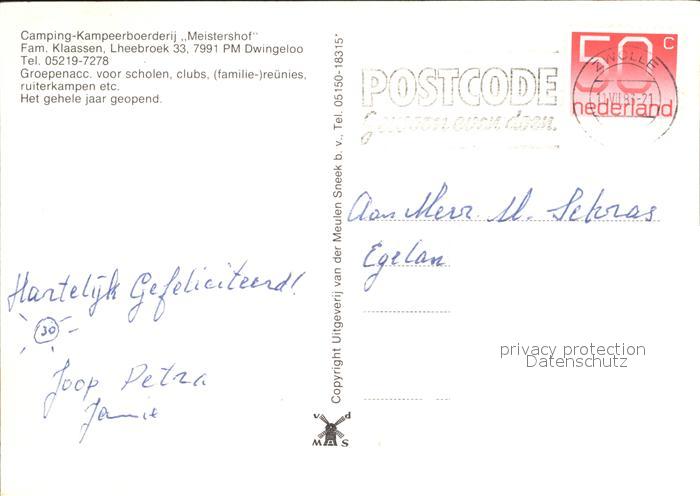 Camping-Kampeerboerderij „Meistershof"
Fam. Klaassen, Lheebroek 33, 7991 PM Dwingeloo
Tel. 05219-7278
Groepenacc. voor scholen, clubs, (familie-)reünies,
ruiterkampen etc.
Het gehele jaar geopend.
Hartelijk Gefeliciteerd!
30
Joop Petra
Jannie
Copyright Uitgeverij van der Meulen Sneek b. v., Tel. 05150-18315*
v d
MAS
POSTCODE
Gewoon even doen.
50 c
nederland
ZWOLLE
Aan Mevr. M.
Egelan
privacy protection
Datenschutz